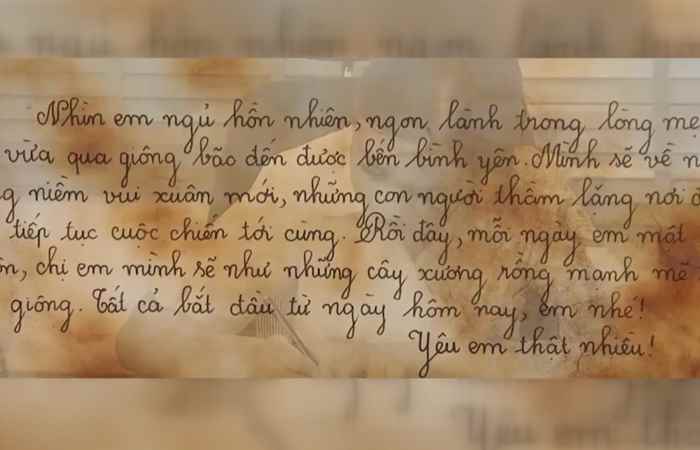 Nhìn em ngủ hồn nhiên, ngon lành trong lòng mẹ
vừa qua giông bão đến được bến bình yên. Mình sẽ về n
g niềm vui xuân mới, những con người thầm lặng nơi đ
tiếp tục cuộc chiến tới cùng. Rồi đây, mỗi ngày em mất
ôn, chị em mình sẽ như những cây xương rồng mạnh mẽ
giông. Tất cả bắt đầu từ ngày hôm nay, em nhé!
Yêu em thật nhiều!